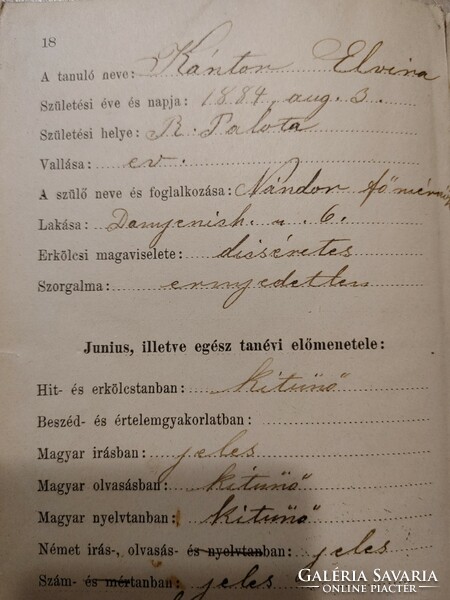 18
A tanuló neve: Kántor Elvira
Születési éve és napja: 1884 aug. 3.
Születési helye: R. Palota
Vallása: ev.
A szülő neve és foglalkozása: Nándor főmérnök
Lakása: Damjanich. u. 6.
Erkölcsi magaviselete: dicséretes
Szorgalma: ernyedetlen
Junius, illetve egész tanévi előmenetele:
Hit- és erkölcstanban: kitünő
Beszéd- és értelemgyakorlatban:
Magyar irásban: jeles
Magyar olvasásban: kitünő
Magyar nyelvtanban: kitünő
Német irás-, olvasás- és nyelvtanban: jeles
Szám- és mértanban: jeles
GALÉRIA SAVARIA
ONLINE PIACTÉR